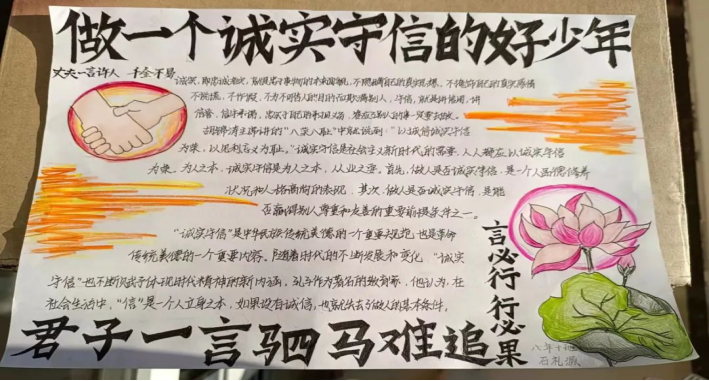 做一个诚实守信的好少年
丈夫一言许人 千金不易
诚实，即忠诚老实，就是忠于事物的本来面貌，不隐瞒自己的真实思想，不掩饰自己的真实感情
不说谎，不作假，不为不可告人的目的而欺瞒别人，守信，就是讲信用，讲
信誉，信守承诺，忠实于自己的承担义务，答应了别人的事一定要去做。
胡锦涛主席讲的"八荣八耻"中就说到："以诚信诚实守信
为荣，以见利忘义为耻。"诚实守信是社会主义新时代的需要，人人确应以诚实守信
为荣。为人之本，诚实守信是为人之本，从业之要。首先，做人是否诚实守信，是一个人品德修养
状况和人格高尚的表现，其次，做人是否诚实守信，是能
否赢得别人尊重和友善的重要前提条件之一。
"诚实守信"是中华民族传统美德的一个重要规范，也是革命
传统美德的一个重要内容。随着时代的不断发展和变化，"诚实
守信"也不断赋予体现时代精神的新内涵，孔子作为著名的教育家，他认为，在
社会生活中，"信"是一个人立身之本，如果没有诚信，也就失去了做人的基本条件。
言必行 行必果
君子一言驷马难追
八年十班
石礼诚